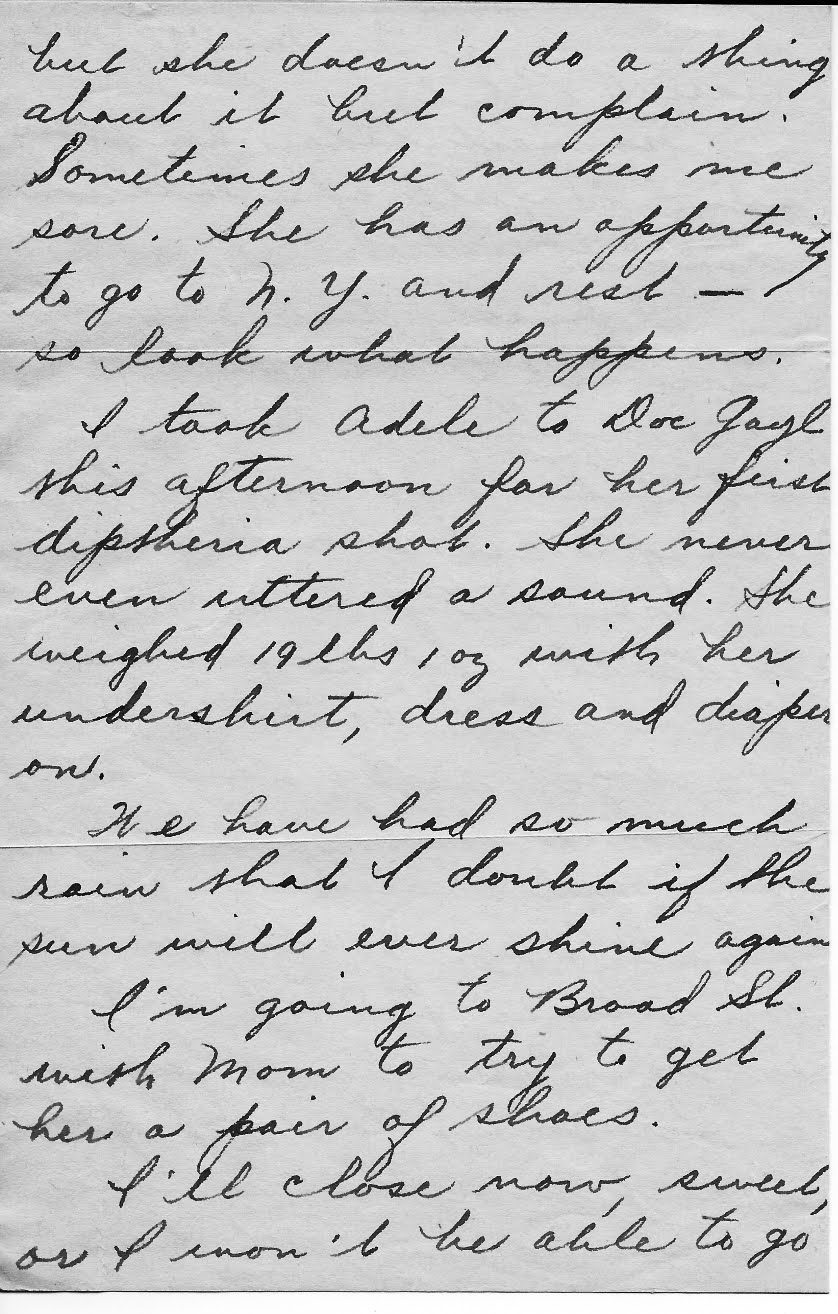 but she doesn't do a thing
about it but complain.
Sometimes she makes me
sore. She has an opportunity
to go to N. Y. and rest —
so look what happens.
I took Adele to Doc Gayl
this afternoon for her first
diptheria shot. She never
even uttered a sound. She
weighed 19 lbs 1 oz with her
undershirt, dress and diaper
on.
We have had so much
rain that I doubt if the
sun will ever shine again
I'm going to Broad St.
with Mom to try to get
her a pair of shoes.
I'll close now, sweet,
or I won't be able to go